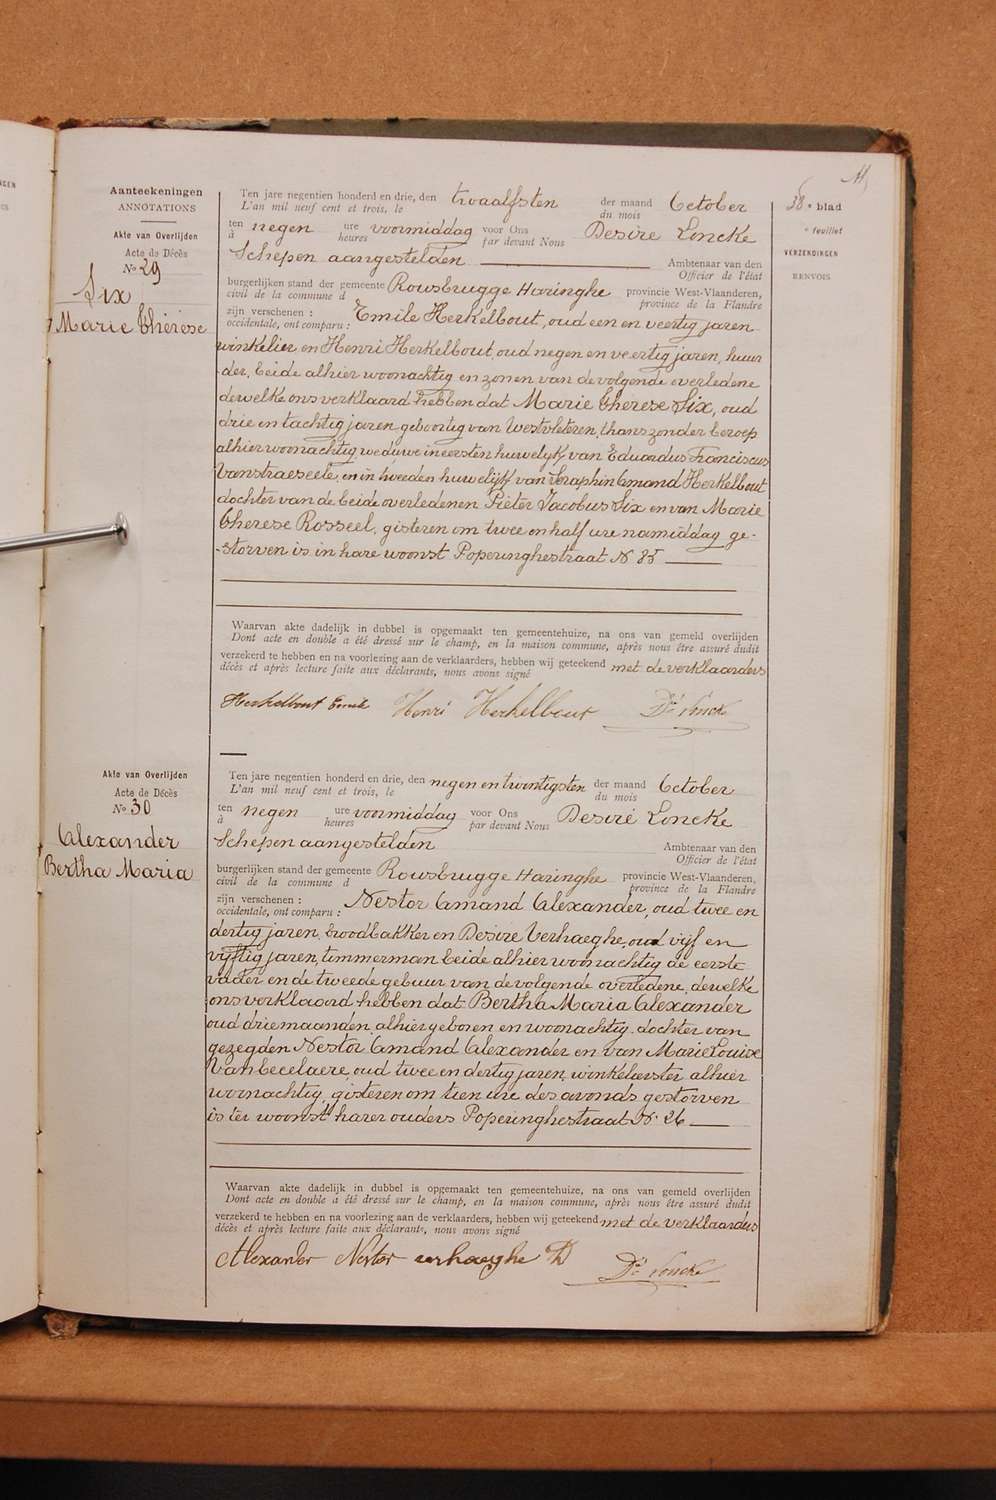 Aanteekeningen
ANNOTATIONS
Akt van Overlijden
Acte de Décès
No 29
Six
Marie Thérèse
Ten jare negentien honderd en drie, den twaalfsten der maand October
L'an mil neuf cent et trois, le du mois
ten negen ure voormiddag voor Ons Desiré Loncke
à heures par devant Nous
Schepen aangestelden Ambtenaar van den
Officier de l'état
burgerlijken stand der gemeente Rousbrugge Haringhe provincie West-Vlaanderen,
civil de la commune d province de la Flandre
zijn verschenen : Emile Herkelbout, oud een en veertig jaren
occidentale, ont comparu :
winkelier, en Henri Herkelbout, oud negen en veertig jaren, huur
der, beide alhier woonachtig en zonen van de volgende overledene
dewelke ons verklaard hebben dat Marie Thérese Six, oud
drie en tachtig jaren geboortig van Westvleteren, thans zonder beroep
alhier woonachtig, weduwe in eersten huwelijk van Eduardus Franciscus
Vanstraeseele, en in tweeden huwelijk van Seraphin Amand Herkelbout
dochter van de beide overledenen Pieter Jacobus Six en van Marie
Therese Rosseel, gisteren om twee en half ure namiddag ge-
-storven is in hare woonst Poperinghestraat N 85
Waarvan akte dadelijk in dubbel is opgemaakt ten gemeentehuize, na ons van gemeld overlijden
Dont acte en double a été dressé sur le champ, en la maison commune, après nous être assuré dudit
verzekerd te hebben en na voorlezing aan de verklaarders, hebben wij geteekend met de verklaarders
décès et après lecture faite aux déclarants, nous avons signé
Herkelbout Emile Henri Herkelbout Dé Loncke
Akte van Overlijden
Acte de Décès
No 30
Alexander
Bertha Maria
Ten jare negentien honderd en drie, den negen en twintigsten der maand October
L'an mil neuf cent et trois, le du mois
ten negen ure voormiddag voor Ons Desiré Loncke
à heures par devant Nous
Schepen aangestelden Ambtenaar van den
Officier de l'état
burgerlijken stand der gemeente Rousbrugge Haringhe provincie West-Vlaanderen,
civil de la commune d province de la Flandre
zijn verschenen : Nestor Amand Alexander, oud twee en
occidentale, ont comparu :
dertig jaren, broodbakker en Desire Verhaeghe, oud vijf en
vijftig jaren, timmerman beide alhier woonachtig de eerste
vader en de tweede gebuur van de volgende overledene, dewelke
ons verklaard hebben dat Bertha Maria Alexander
oud drie maanden alhier geboren en woonachtig, dochter van
gezegden Nestor Amand Alexander en van Marie Louise
Vanbecelaere, oud twee en dertig jaren, winkelierster alhier
woonachtig, gisteren om tien ure des avonds gestorven
is ter woonst harer ouders Poperinghestraat N 26
Waarvan akte dadelijk in dubbel is opgemaakt ten gemeentehuize, na ons van gemeld overlijden
Dont acte en double a été dressé sur le champ, en la maison commune, après nous être assuré dudit
verzekerd te hebben en na voorlezing aan de verklaarders, hebben wij geteekend met de verklaarders
décès et après lecture faite aux déclarants, nous avons signé
Alexander Nestor verhaeghe D Dé Loncke
38e blad
e feuillet
VERZENDINGEN
RENVOIS